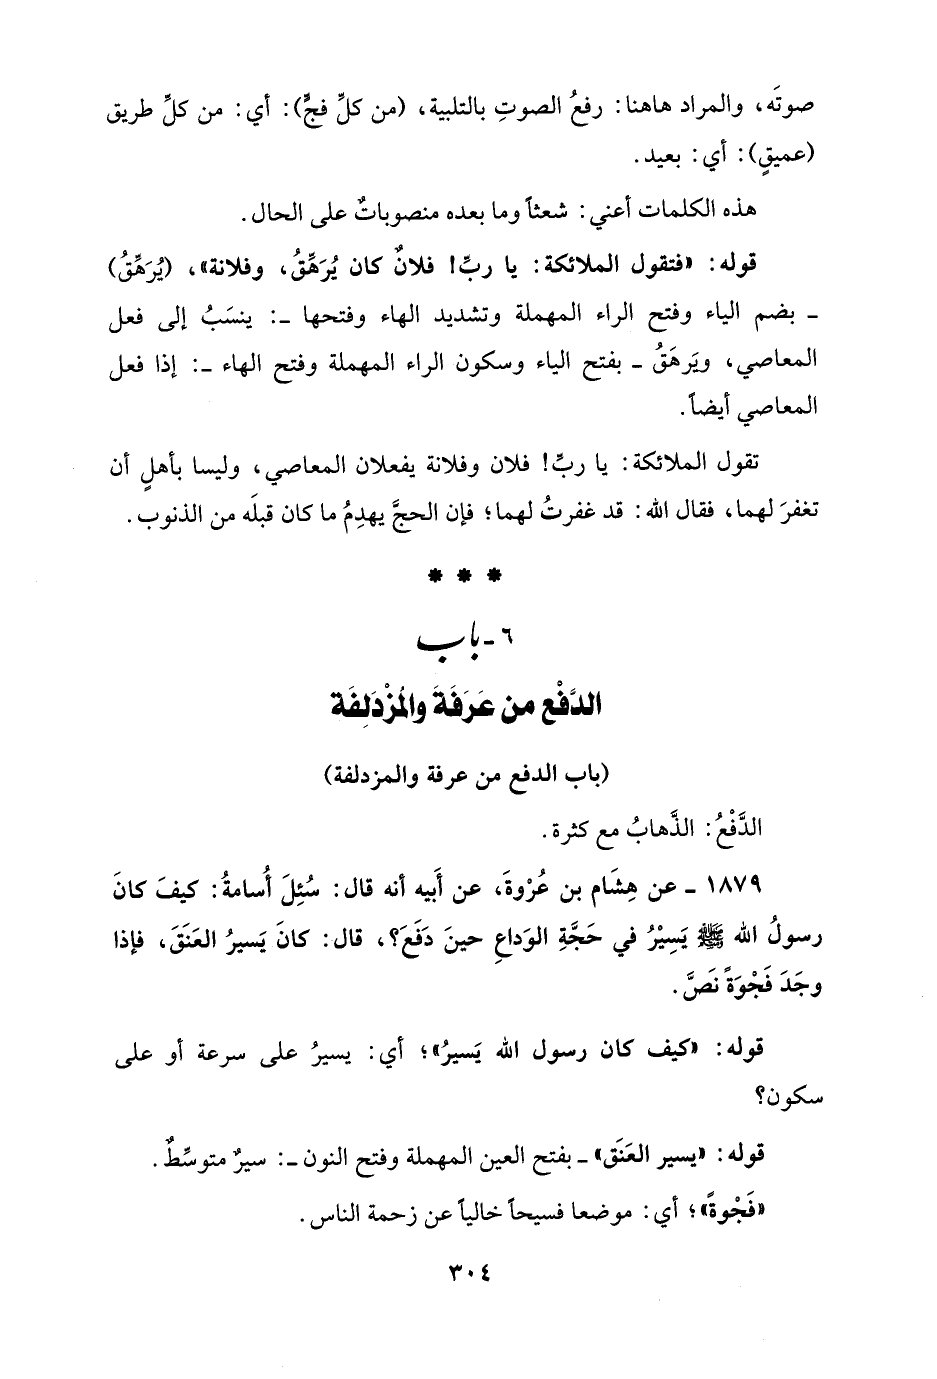 صوتَه، والمراد هاهنا: رفعُ الصوتِ بالتلبية، (من كلِّ فجٍّ): أي: من كلِّ طريق
(عميقٍ): أي: بعيد.
هذه الكلمات أعني: شعثاً وما بعده منصوباتٌ على الحال.
قوله: «فتقول الملائكة: يا ربِّ! فلانٌ كان يُرَهَّقُ، وفلانة»، (يُرَهَّقُ)
ـ بضم الياء وفتح الراء المهملة وتشديد الهاء وفتحها ـ: ينسَبُ إلى فعل
المعاصي، ويَرهَقُ ـ بفتح الياء وسكون الراء المهملة وفتح الهاء ـ: إذا فعل
المعاصي أيضاً.
تقول الملائكة: يا ربِّ! فلان وفلانة يفعلان المعاصي، وليسا بأهلٍ أن
تغفرَ لهما، فقال الله: قد غفرتُ لهما؛ فإن الحجَّ يهدِمُ ما كان قبلَه من الذنوب.
* * *
٦ ـ باب
الدَّفْع من عَرَفَةَ والمُزْدَلِفَة
(باب الدفع من عرفة والمزدلفة)
الدَّفْعُ: الذَّهابُ مع كثرة.
١٨٧٩ ـ عن هِشَام بن عُرْوةَ، عن أَبيه أنه قال: سُئِلَ أُسامةُ: كيفَ كانَ
رسولُ الله ﷺ يَسِيْرُ في حَجَّةِ الوَداعِ حينَ دَفَعَ؟، قال: كانَ يَسيرُ العَنَقَ، فإذا
وجَدَ فَجْوَةً نَصَّ.
قوله: «كيف كان رسول الله يَسيرُ»؛ أي: يسيرُ على سرعة أو على
سكون؟
قوله: «يسير العَنَق» ـ بفتح العين المهملة وفتح النون ـ: سيرٌ متوسِّطٌ.
«فَجْوةً»؛ أي: موضعا فسيحاً خالياً عن زحمة الناس.
٣٠٤